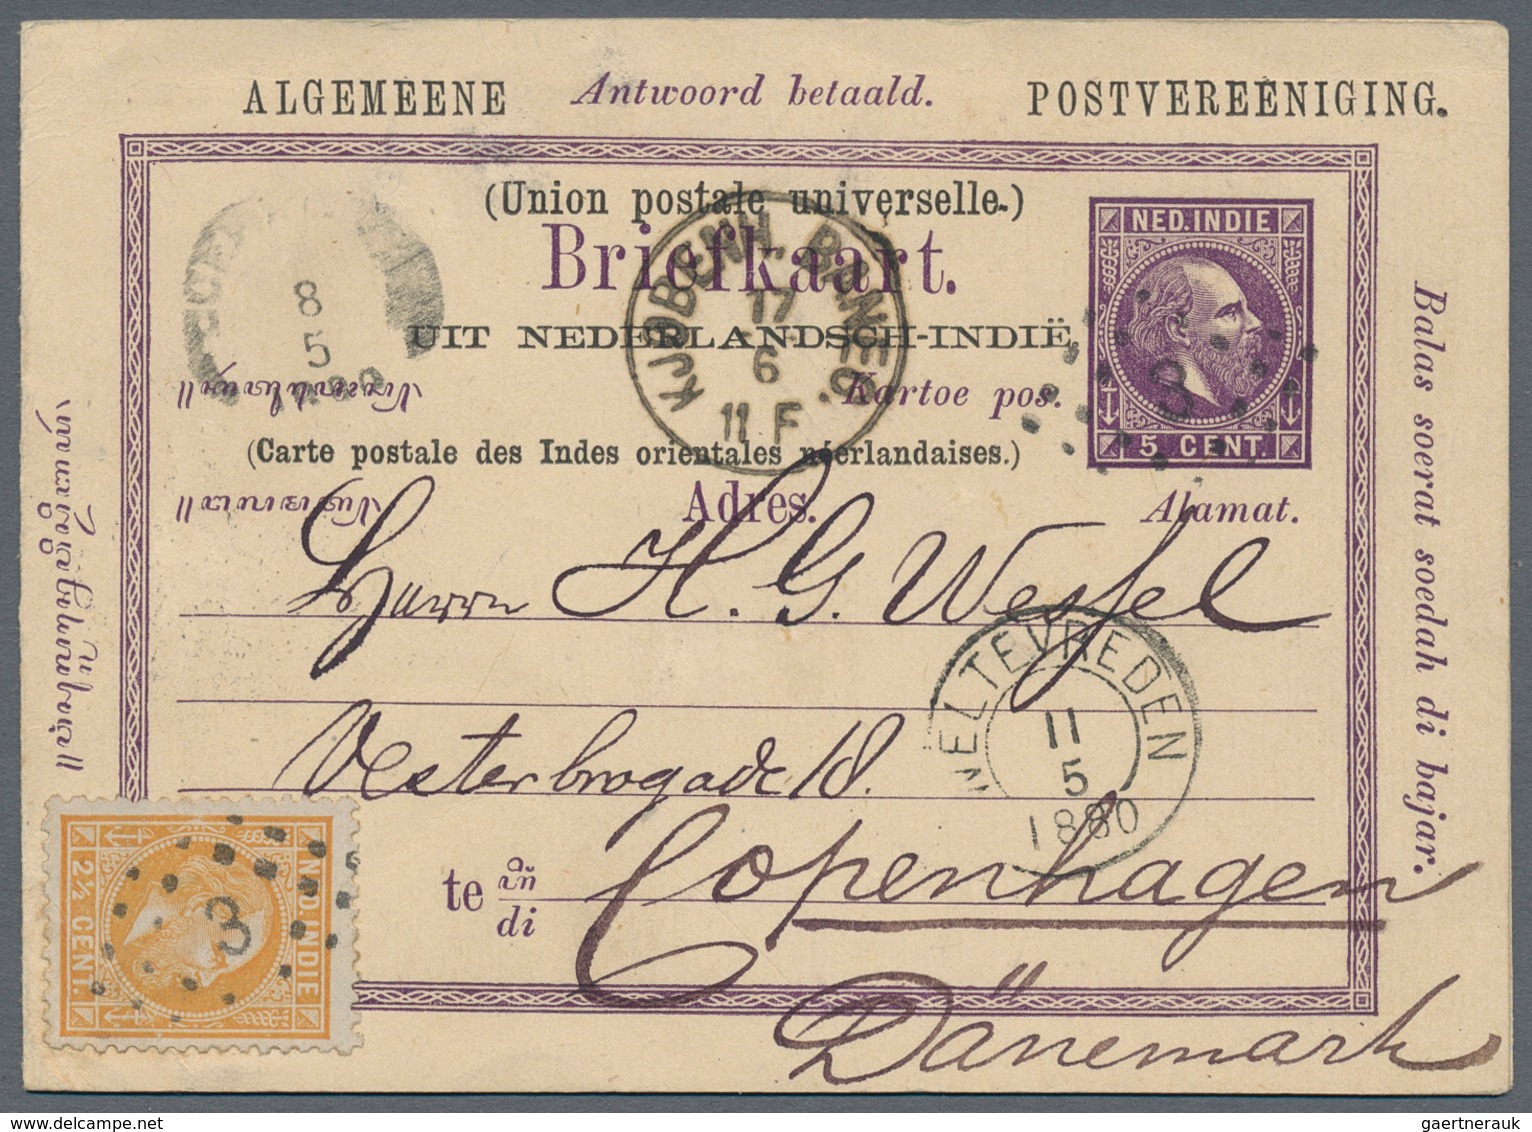 ALGEMEENE Antwoord betaald. POSTVEREENIGING.
(Union postale universelle.)
Briefkaart.
UIT NEDERLANDSCH-INDIË.
Kartoe pos.
(Carte postale des Indes orientales néerlandaises.)
Adres. Alamat.
NED. INDIE
5 CENT.
3
KJØBENH. BANEG.
17
6
11 F
8
5
Herrn H. G. Wessel
Vesterbrogade 18.
te
di
Copenhagen
Dänemark
WELTEVREDEN
11
5
1880
NED. INDIE
2½ CENT.
3
Balas soerat soedah di bajar.
gaertnerauk